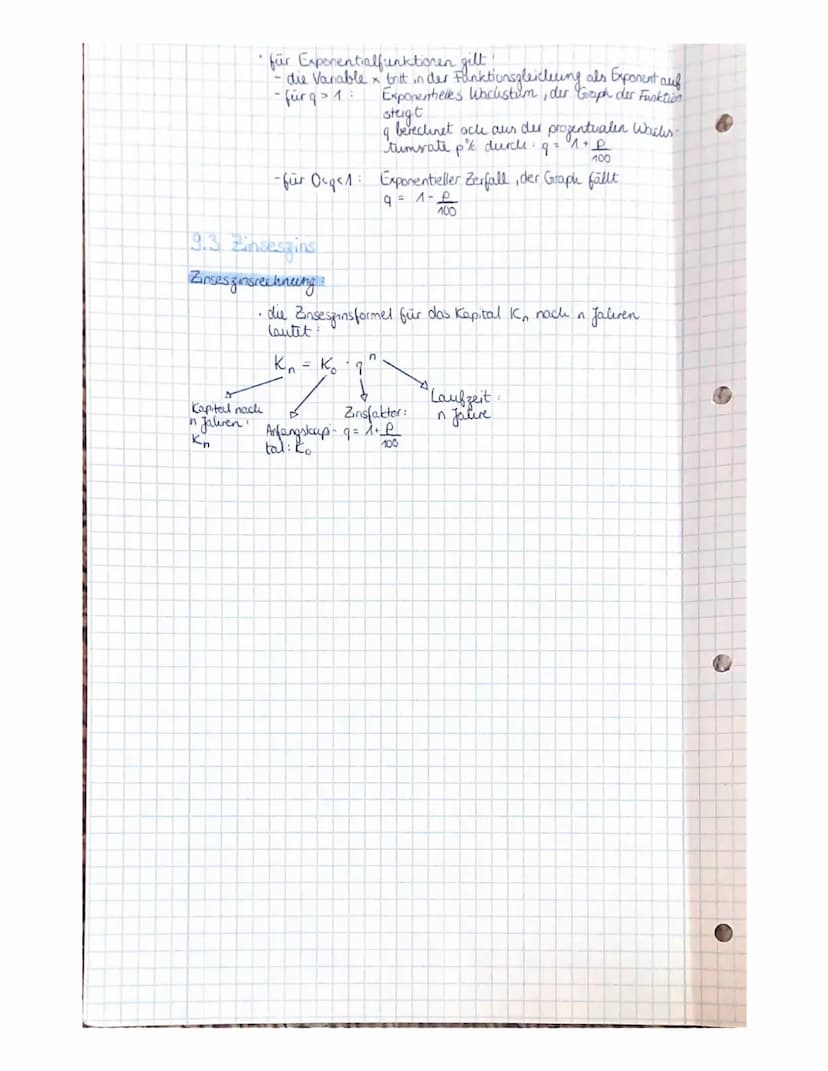 · für Exponentialfunktionen gilt:
- die Variable x tritt in der Funktionsgleichung als Exponent auf
- für q > 1: Exponentielles Wachstum, der Graph der Funktion
steigt
q berechnet sich aus der prozentualen Wachs-
tumsrate p% durch: q = 1 + p/100
- für 0<q<1: Exponentieller Zerfall, der Graph fällt
q = 1 - p/100
9.3 Zinseszins
Zinseszinsrechnung:
· die Zinseszinsformel für das Kapital Kₙ nach n Jahren
lautet:
Kₙ = K₀ · qⁿ
Kapital nach
n Jahren:
Kₙ
Anfangskapi-
tal: K₀
Zinsfaktor:
q = 1 + p/100
Laufzeit:
n Jahre